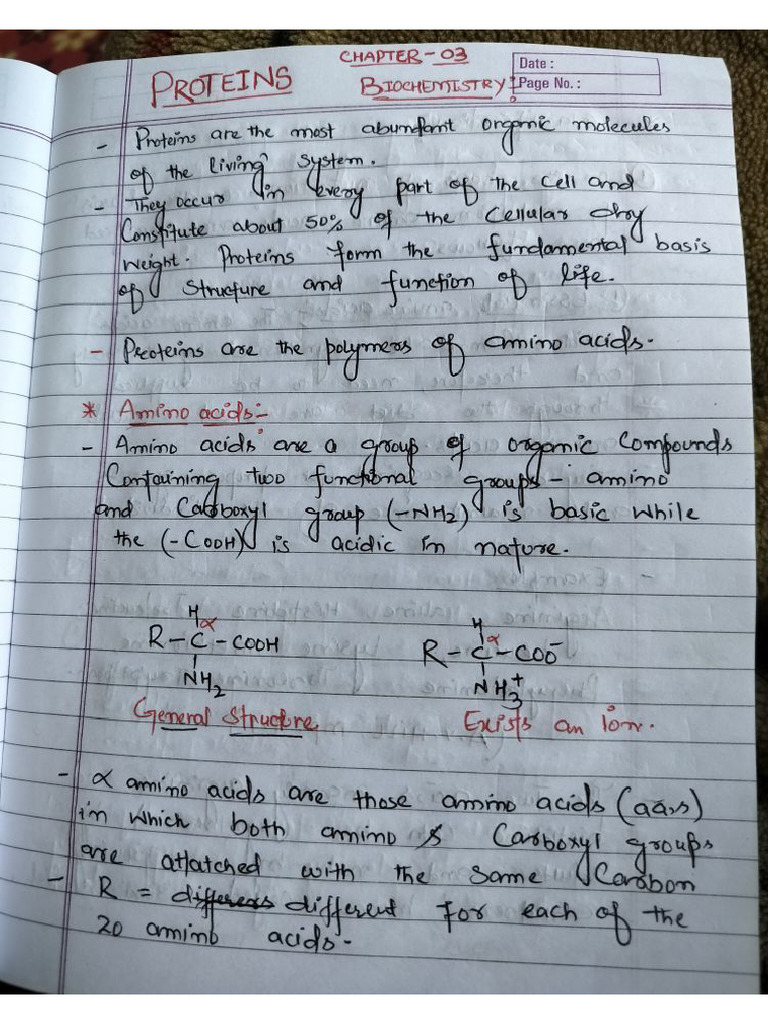 CHAPTER-03
Date :
PROTEINS
BIOCHEMISTRY:
Page No. :
- Proteins are the most abundant organic molecules
of the living system.
- They occur in every part of the cell and
Constitute about 50% of the cellular dry
weight. Proteins form the fundamental basis
of structure and function of life.
- Proteins are the polymers of amino acids.
* Amino acids:-
- Amino acids are a group of organic compounds
Containing two functional groups - amino
and Carboxyl group (-NH2) is basic while
the (-COOH) is acidic in nature.
H
α
R-C-COOH
NH2
General Structure
H
α
R-C-COO-
NH3+
Exists an ion.
- α amino acids are those amino acids (aa,s)
in which both amino & Carboxyl groups
are attatched with the same Carbon
- R = differess different for each of the
20 amino acids.